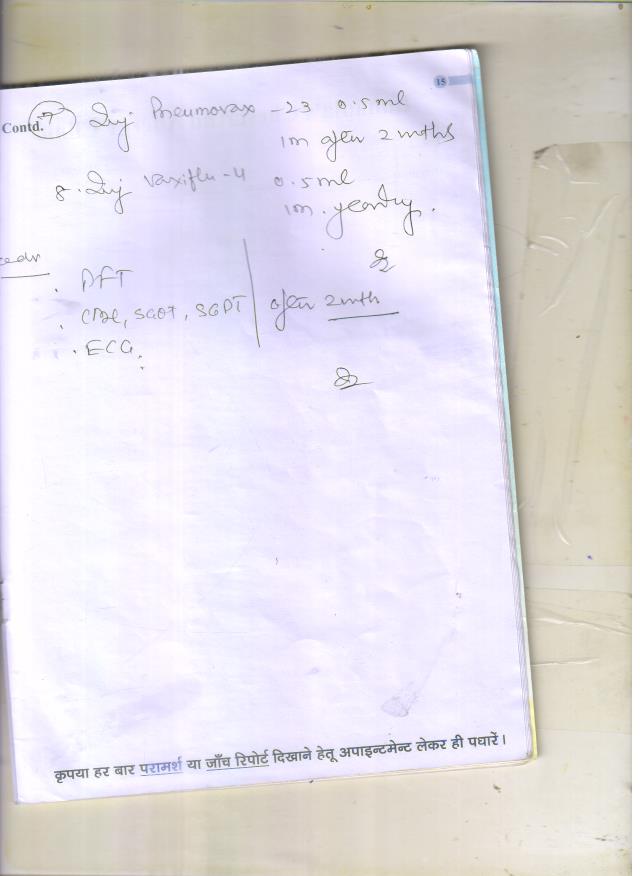 15
Contd. 7 Inj Pneumovax -23 0.5ml
im after 2 mths
8. Inj Vaxiflu-4 0.5ml
im. yearly.
. PFT
. CBC, SGOT, SGPT after 2 mth
. ECG.
कृपया हर बार परामर्श या जाँच रिपोर्ट दिखाने हेतू अपाइन्टमेन्ट लेकर ही पधारें।